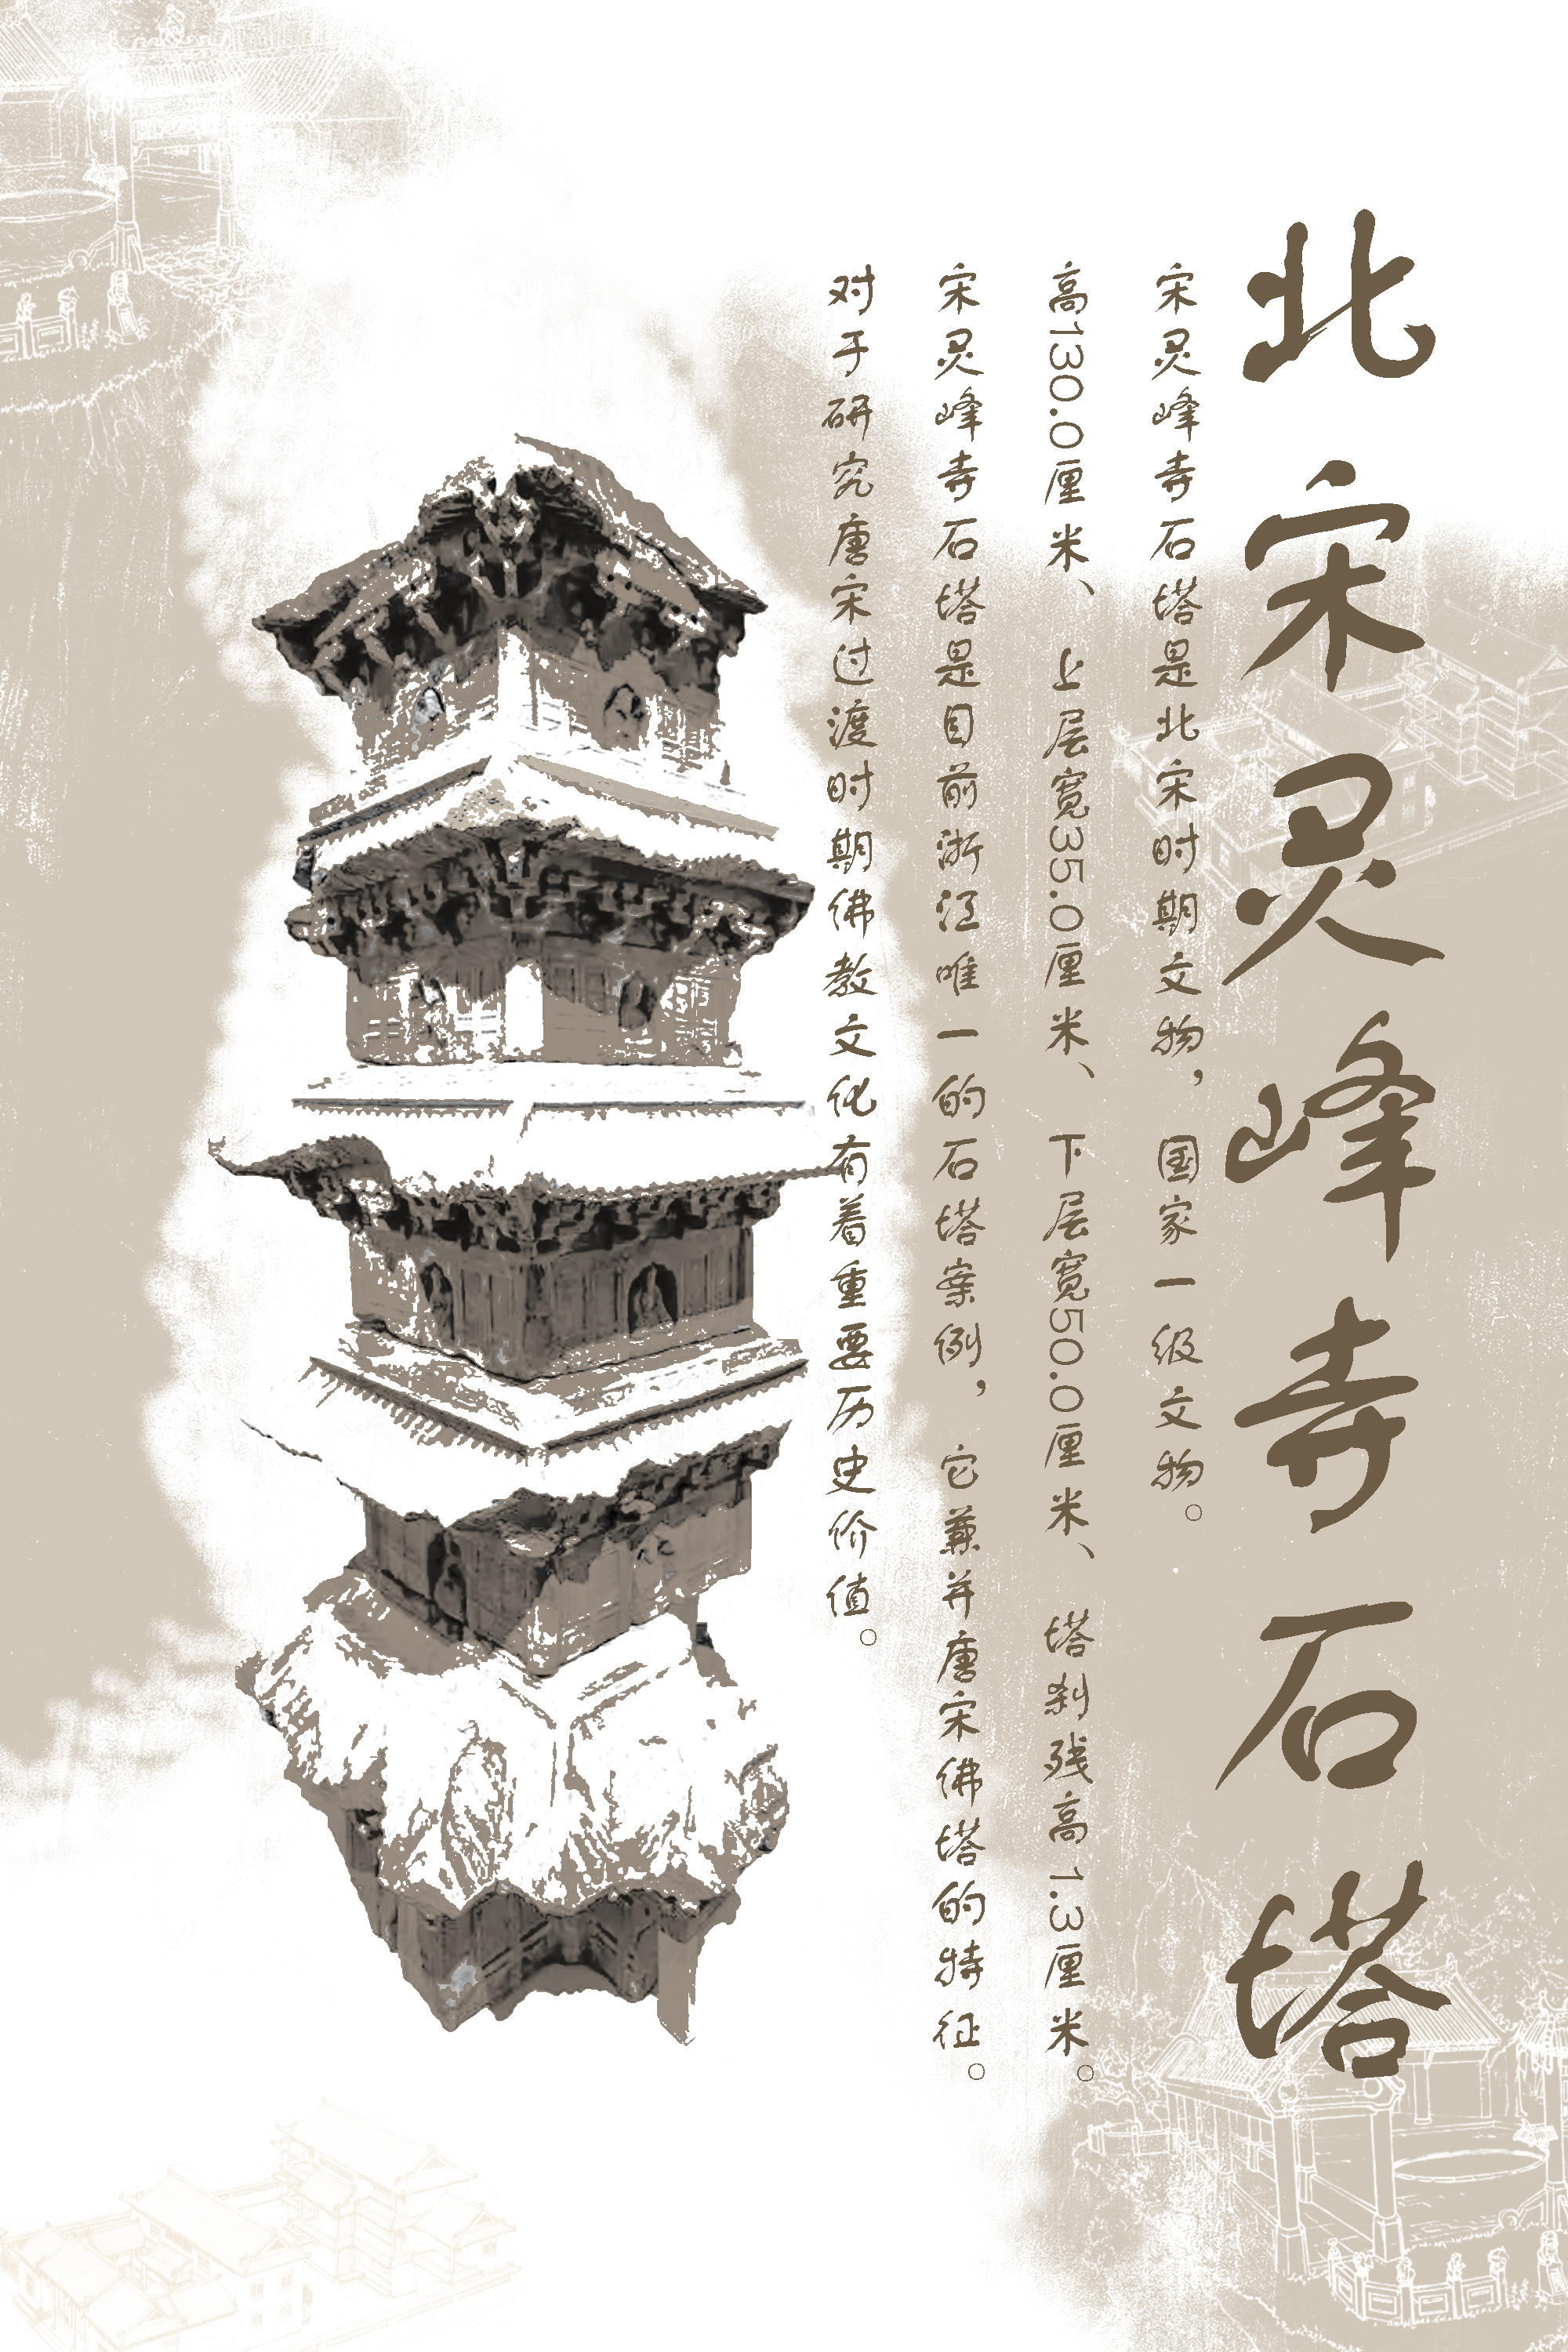 北宋灵峰寺石塔
宋灵峰寺石塔是北宋时期文物，国家一级文物。
高130.0厘米、上层宽35.0厘米、下层宽50.0厘米、塔刹残高1.3厘米。
宋灵峰寺石塔是目前浙江唯一的石塔案例，它兼并唐宋佛塔的特征。
对于研究唐宋过渡时期佛教文化有着重要历史价值。